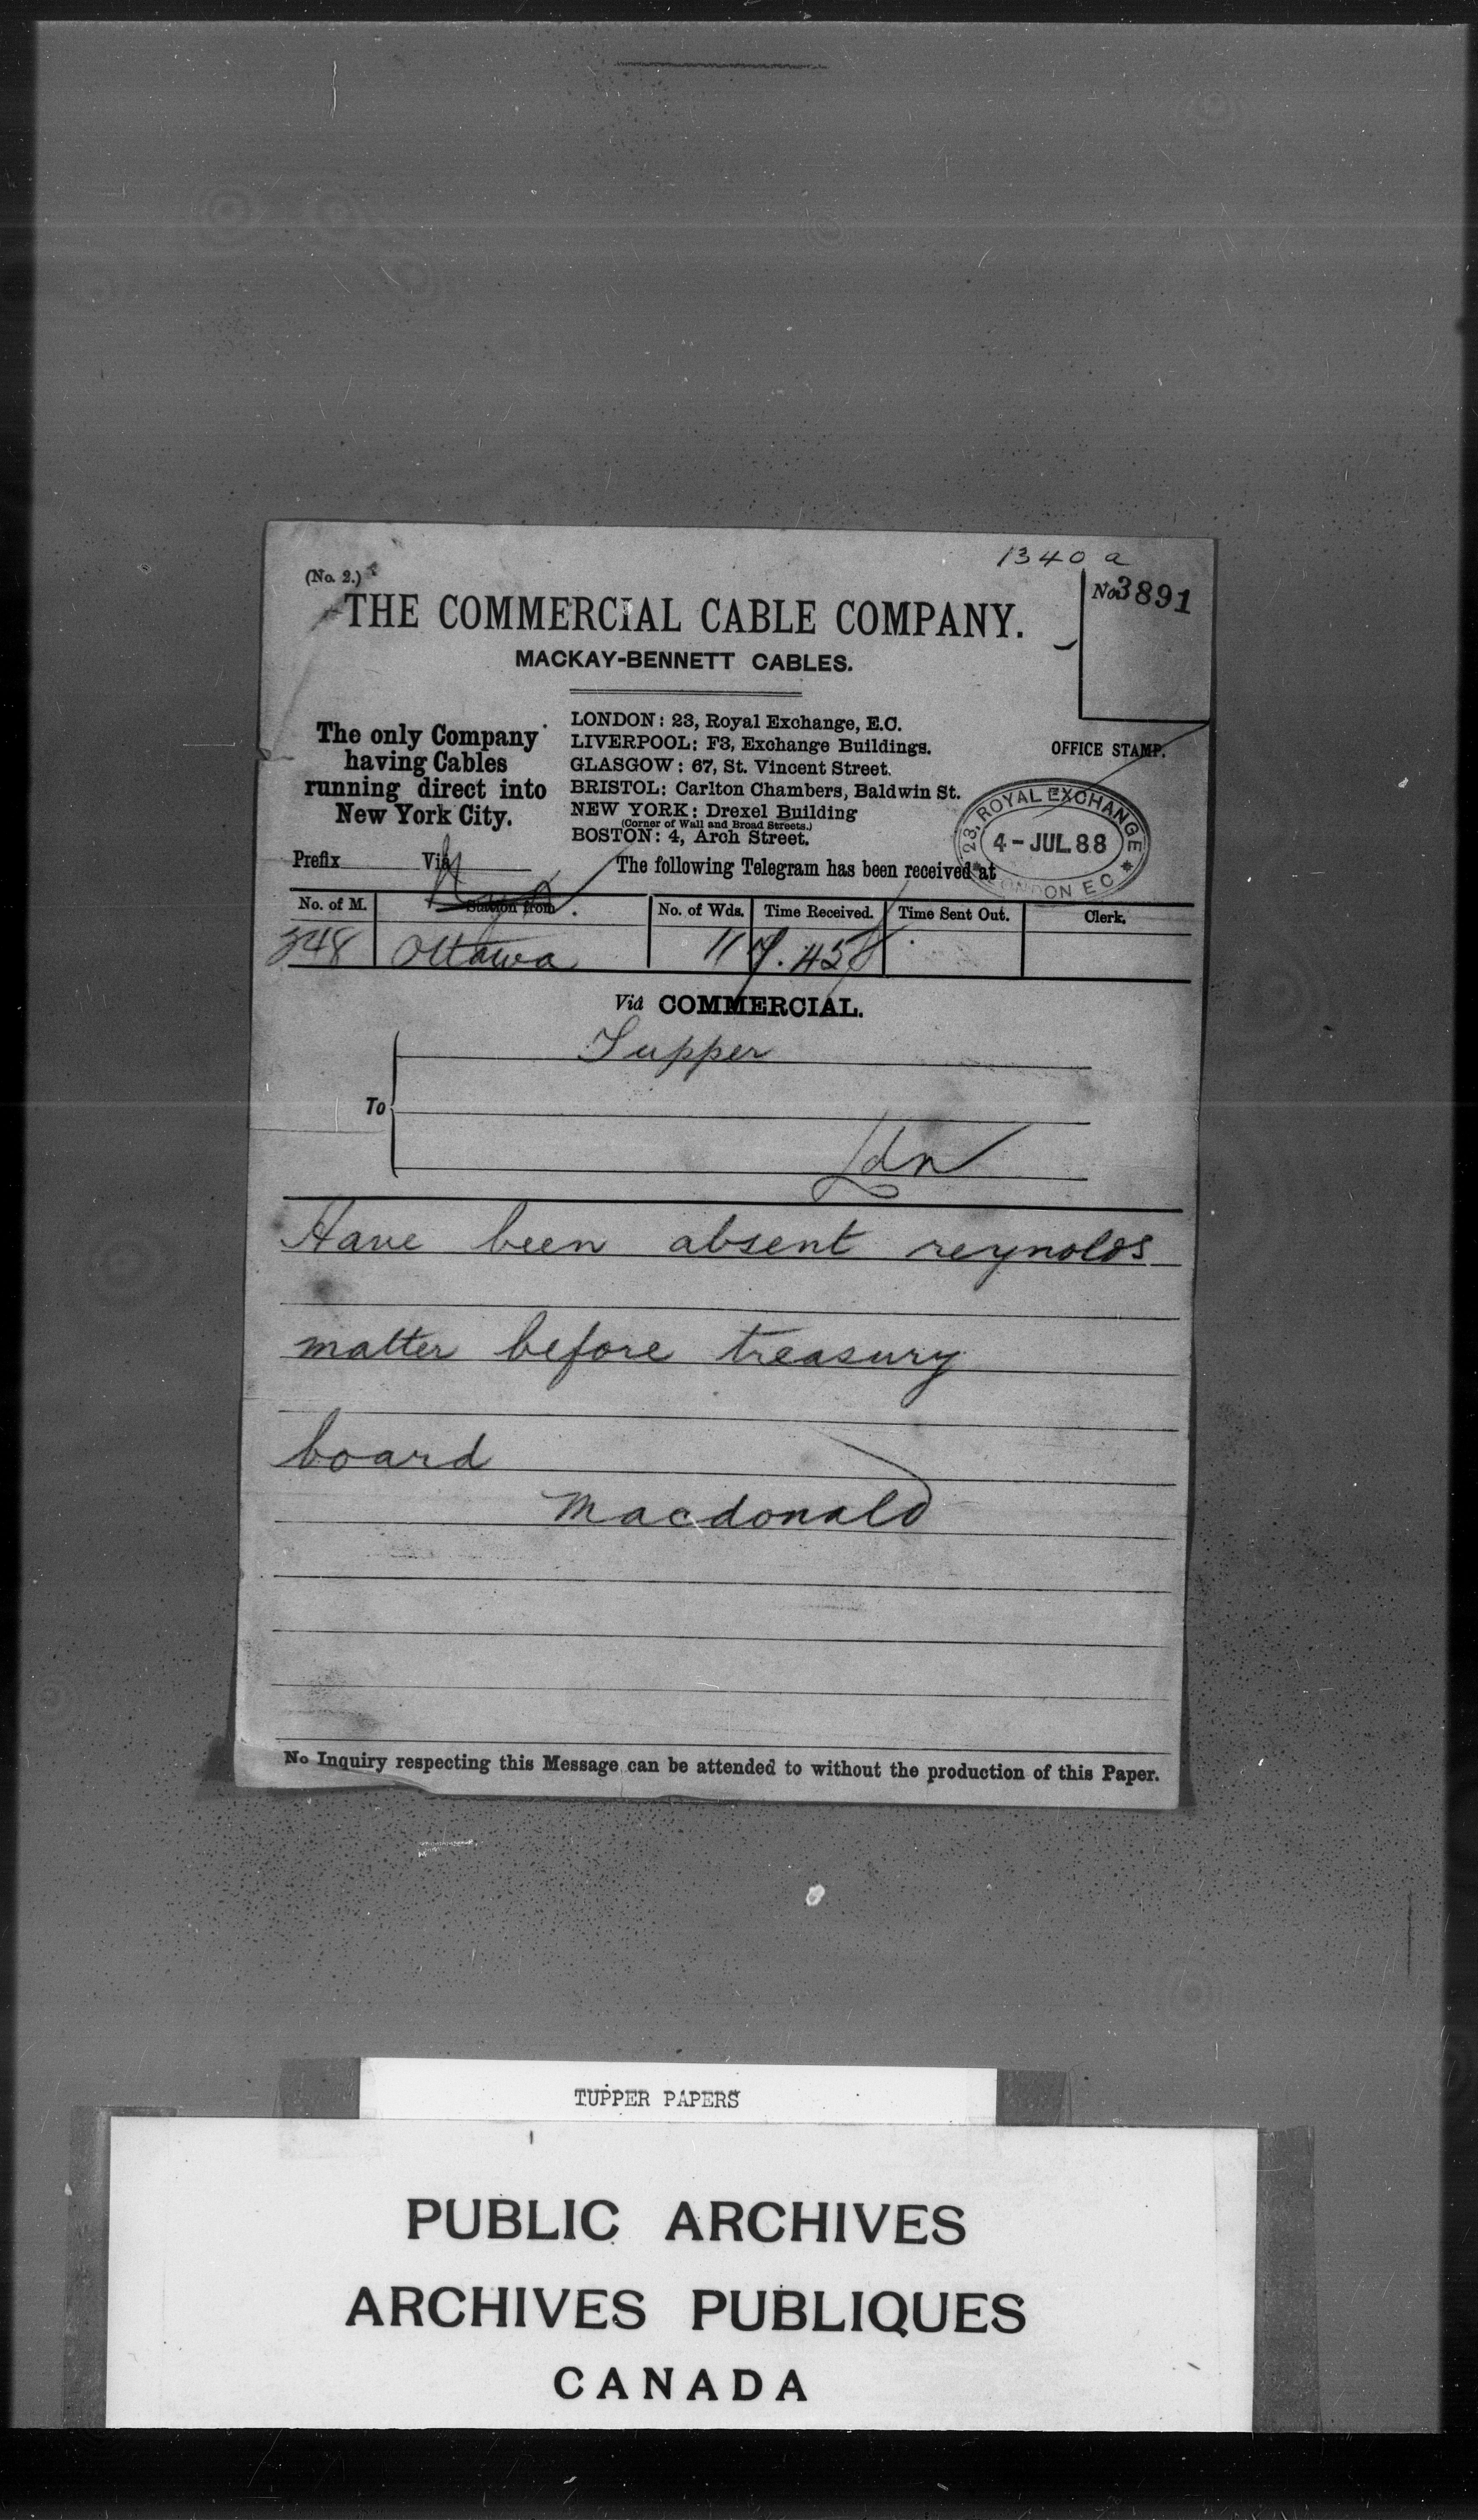 1340 a
(No. 2.)
No. 3891
THE COMMERCIAL CABLE COMPANY.
MACKAY-BENNETT CABLES.
The only Company
having Cables
running direct into
New York City.
LONDON: 23, Royal Exchange, E.C.
LIVERPOOL: F3, Exchange Buildings.
GLASGOW: 67, St. Vincent Street.
BRISTOL: Carlton Chambers, Baldwin St.
NEW YORK: Drexel Building
(Corner of Wall and Broad Streets.)
BOSTON: 4, Arch Street.
OFFICE STAMP.
23, ROYAL EXCHANGE
4-JUL.88
LONDON E C
Prefix Viâ
The following Telegram has been received at
No. of M. Station from No. of Wds. Time Received. Time Sent Out. Clerk.
348 Ottawa 11
Viâ COMMERCIAL.
To
Tupper
Ldn
Have been absent reynolds
matter before treasury
board
Macdonald
No Inquiry respecting this Message can be attended to without the production of this Paper.
TUPPER PAPERS
PUBLIC ARCHIVES
ARCHIVES PUBLIQUES
CANADA